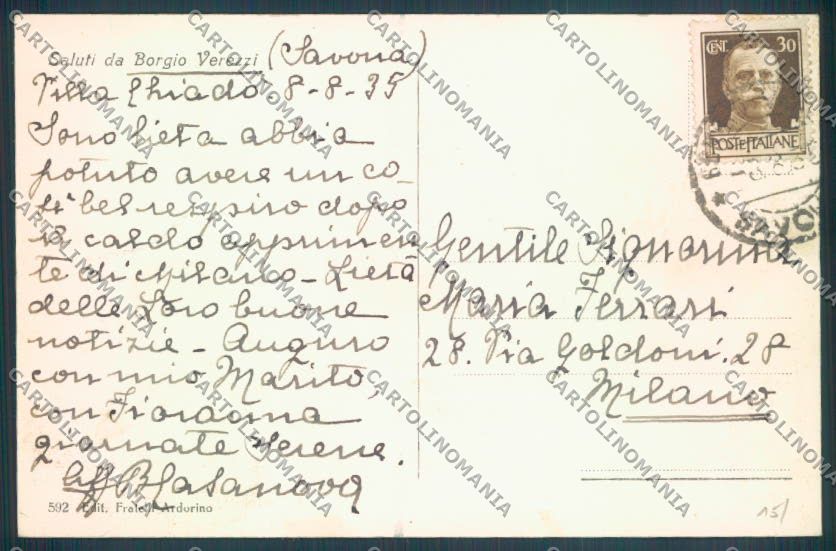 Saluti da Borgio Verezzi (Savona)
Villa Chiado 8-8-35
Sono lieta abbia
potuto avere un co-
sì bel respiro dopo
il caldo opprimen
te di Milano - Lieta
delle Loro buone
notizie - Auguro
con mio Marito,
con Fiordoma
giornate serene.
Aff B Casanova
592 Edit. Fratelli Ardorino
CENT. 30
POSTE ITALIANE
Gentile Signorina
Maria Ferrari
28. Via Goldoni. 28
Milano
15/
CARTOLINOMANIA